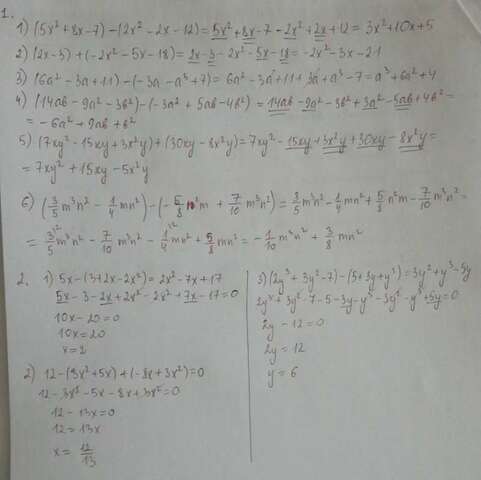 1.
1) (5x² + 8x - 7) - (2x² - 2x - 12) = 5x² + 8x - 7 - 2x² + 2x + 12 = 3x² + 10x + 5
2) (2x - 3) + (-2x² - 5x - 18) = 2x - 3 - 2x² - 5x - 18 = -2x² - 3x - 21
3) (6a² - 3a + 11) - (-3a - a³ + 7) = 6a² - 3a + 11 + 3a + a³ - 7 = a³ + 6a² + 4
4) (14ab - 9a² - 3b²) - (-3a² + 5ab - 4b²) = 14ab - 9a² - 3b² + 3a² - 5ab + 4b² =
= -6a² + 9ab + b²
5) (7xy² - 15xy + 3x²y) + (30xy - 8x²y) = 7xy² - 15xy + 3x²y + 30xy - 8x²y =
= 7xy² + 15xy - 5x²y
6) (3/5 m³n² - 1/4 mn²) - (-5/8 n²m + 7/10 m³n²) = 3/5 m³n² - 1/4 mn² + 5/8 n²m - 7/10 m³n² =
= 3/5 m³n² - 7/10 m³n² - 1/4 mn² + 5/8 mn² = -1/10 m³n² + 3/8 mn²
2. 1) 5x - (3 + 2x - 2x²) = 2x² - 7x + 17
5x - 3 - 2x + 2x² - 2x² + 7x - 17 = 0
10x - 20 = 0
10x = 20
x = 2
2) 12 - (3x² + 5x) + (-8x + 3x²) = 0
12 - 3x² - 5x - 8x + 3x² = 0
12 - 13x = 0
12 = 13x
x = 12/13
3) (2y³ + 3y² - 7) - (5 + 3y + y³) = 3y² + y³ - 5y
2y³ + 3y² - 7 - 5 - 3y - y³ - 3y² - y³ + 5y = 0
2y - 12 = 0
2y = 12
y = 6